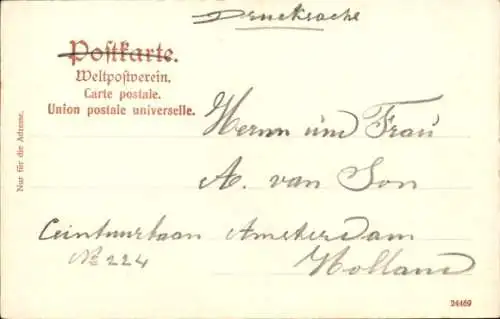 Drucksache
Postkarte.
Weltpostverein.
Carte postale.
Union postale universelle.
Nur für die Adresse.
Herrn und Frau
A. van Son
Ceintuurbaan Amsterdam
No 224
Holland
24469